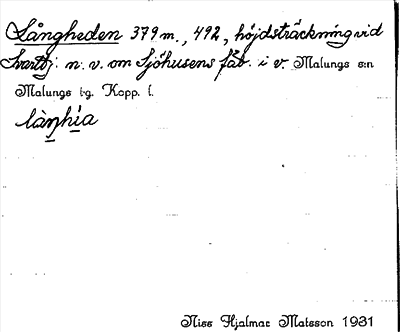 Långheden 379 m., 492, höjdsträckning vid
Svartbj. n. v. om Sjöhusens fäb. i v. Malungs s:n
Malungs tg. Kopp. l.
làŋhìa
Niss Hjalmar Matsson 1931